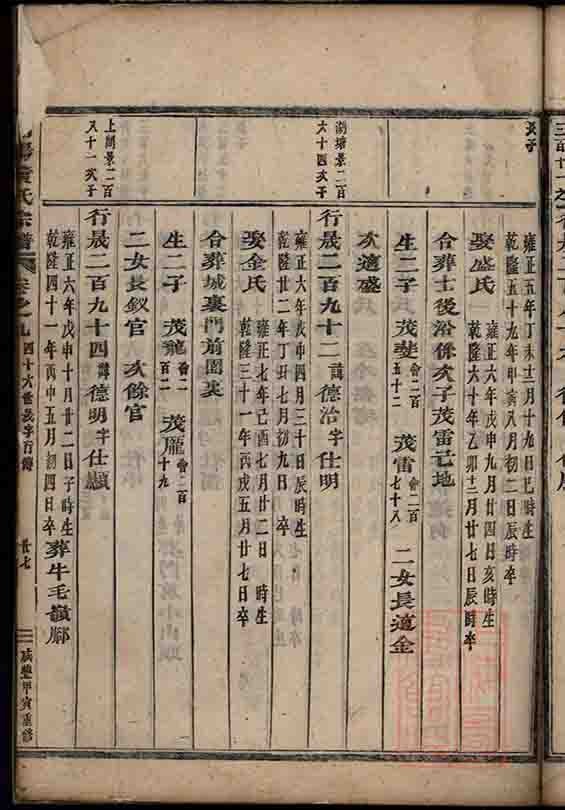 長子
雍正五年丁未十二月十九日巳時生
乾隆五十九年甲寅八月初二日辰時卒
娶盛氏
雍正六年戊申九月廿四日亥時生
乾隆六十年乙卯十二月廿七日辰時卒
合葬士後浴係次子茂雷己地
生二子 茂斐 會二百五十二 茂雷 會二百七十八 二女長適金
次適盛
湖塘景二百六十四次子
行晟二百九十二 諱德治字仕明
雍正六年戊申四月三十日辰時生
乾隆廿二年丁丑七月初九日卒
娶金氏
雍正七年己酉七月廿二日 時生
乾隆三十一年丙戌五月廿七日卒
合葬城裏門前園裏
生二子 茂龍 會二百二 茂龐 會二百十九
二女長釵官 次餘官
上湖景二百八十一次子
行晟二百九十四 諱德明字仕顯
雍正六年戊申十月廿二日子時生
乾隆四十一年丙申五月初四日卒 葬牛毛嶺脚
氏宗譜
卷之九 四十六世晟字行傳
廿七
咸豐甲寅重修